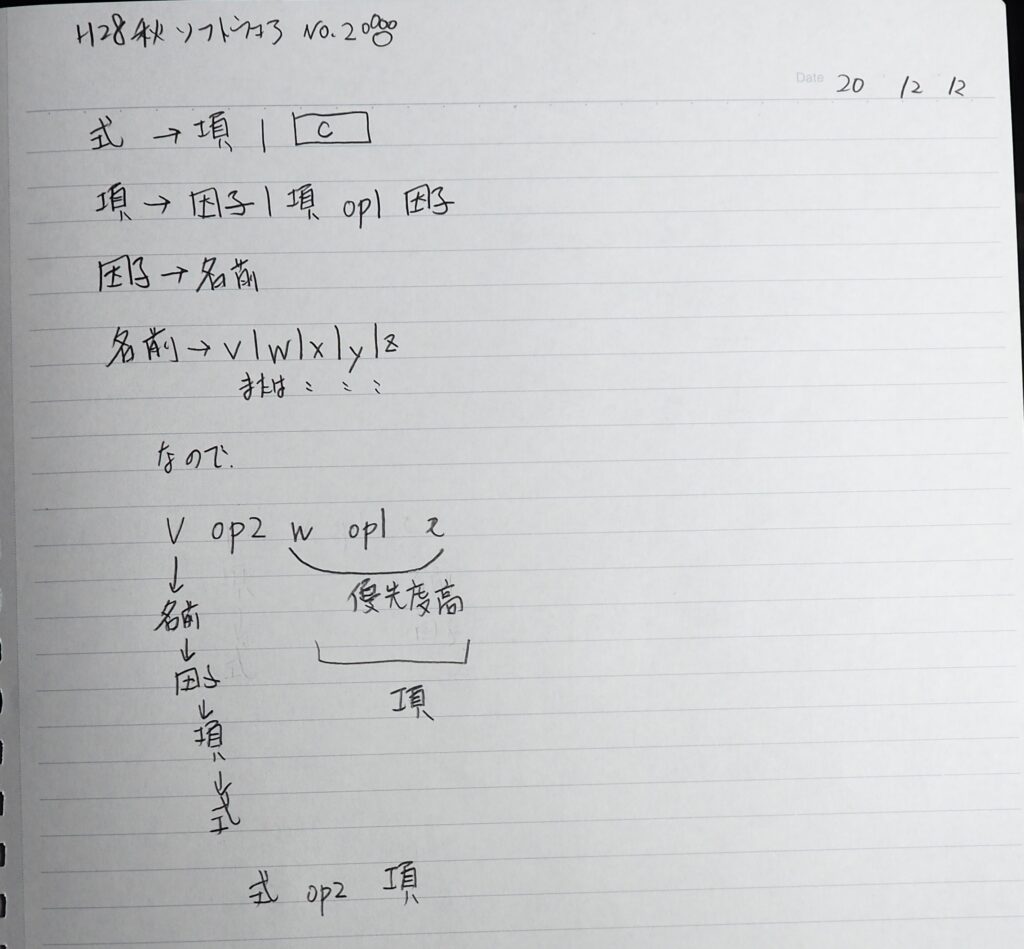 H28秋 ソフトウェア No.2
Date 20 12 12
式 → 項 | C
項 → 因子 | 項 op1 因子
因子 → 名前
名前 → v | w | x | y | z
または 〃 〃 〃
なので.
V op2 w op1 z
↓
名前
優先度高
↓
因子
項
↓
項
↓
式
式 op2 項